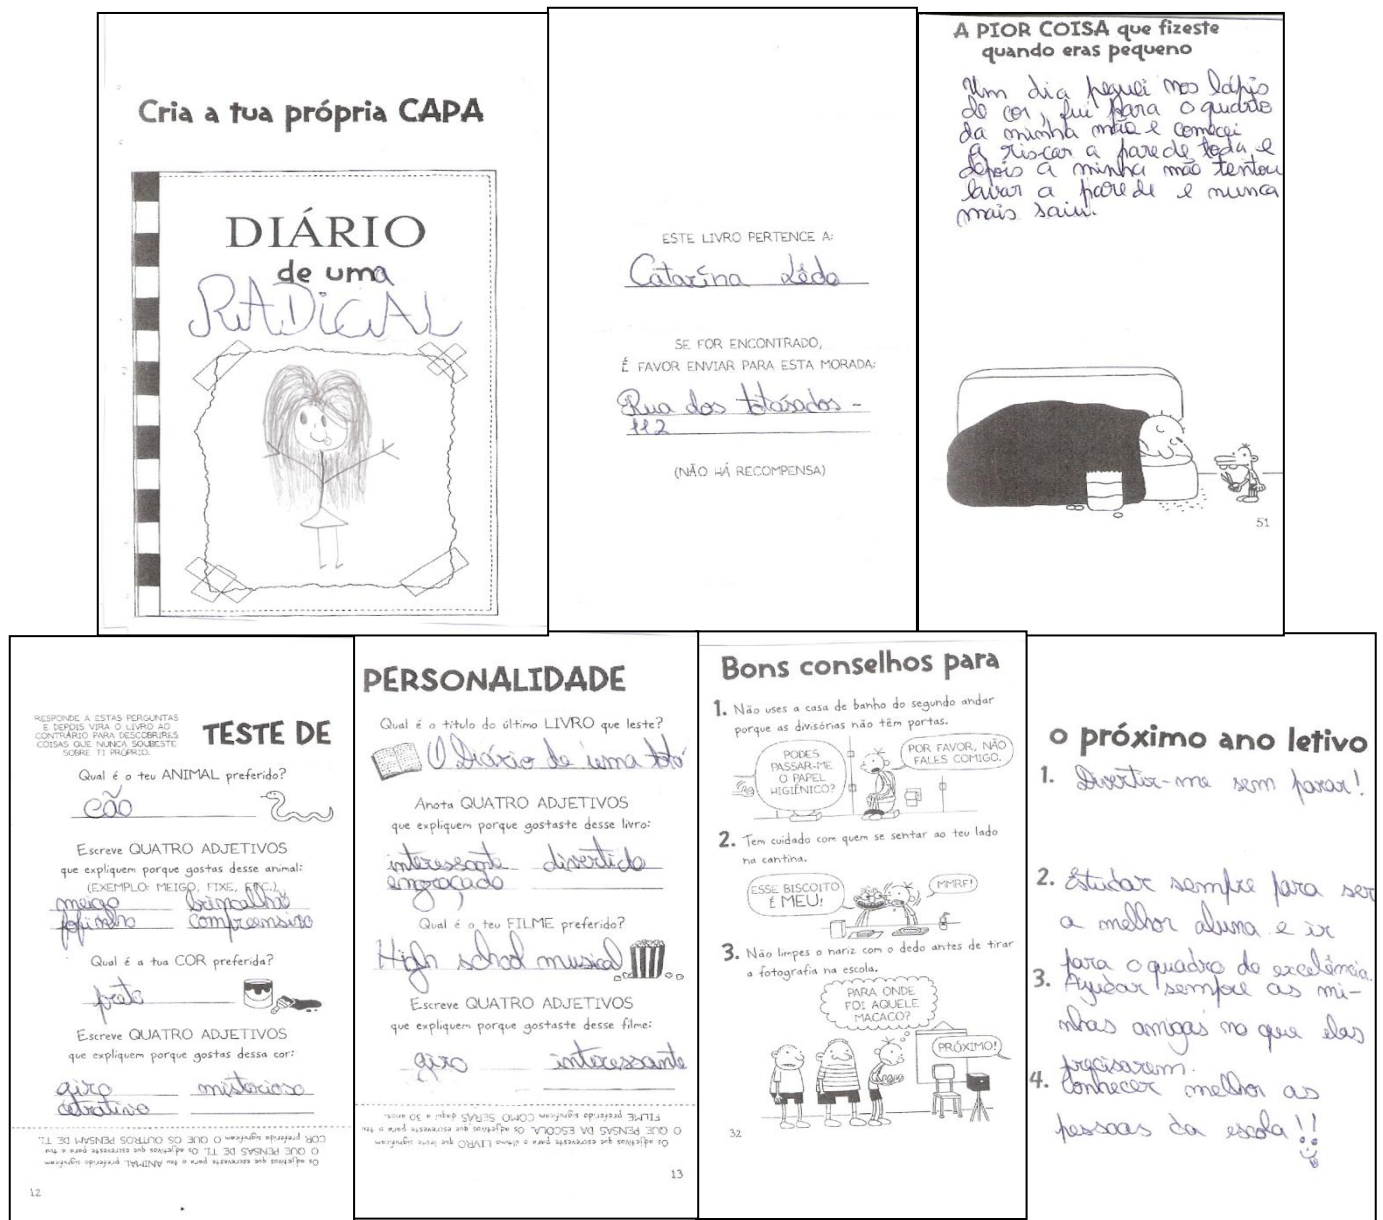 Cria a tua própria CAPA
DIÁRIO
de uma
RADICAL
ESTE LIVRO PERTENCE A:
Catarina Lêdo
SE FOR ENCONTRADO,
É FAVOR ENVIAR PARA ESTA MORADA:
Rua dos –
112
(NÃO HÁ RECOMPENSA)
A PIOR COISA que fizeste
quando eras pequeno
Um dia peguei nos lápis
de cor, fui para o quarto
da minha mãe e comecei
a riscar a parede toda e
depois a minha mãe tentou
lavar a parede e nunca
mais saiu.
51
RESPONDE A ESTAS PERGUNTAS
E DEPOIS VIRA O LIVRO AO
CONTRÁRIO PARA DESCOBRIRES
COISAS QUE NUNCA SOUBESTE
SOBRE TI PRÓPRIO.
TESTE DE
Qual é o teu ANIMAL preferido?
cão
Escreve QUATRO ADJETIVOS
que expliquem porque gostas desse animal:
(EXEMPLO: MEIGO, FIXE, ETC.)
meigo brincalhão
fofinho compreensivo
Qual é a tua COR preferida?
preto
Escreve QUATRO ADJETIVOS
que expliquem porque gostas dessa cor:
giro misterioso
Os adjetivos que escreveste para o teu ANIMAL preferido significam
O QUE PENSAS DE TI. Os adjetivos que escreveste para a tua
COR preferida significam O QUE OS OUTROS PENSAM DE TI.
12
PERSONALIDADE
Qual é o título do último LIVRO que leste?
O Diário de uma totó
Anota QUATRO ADJETIVOS
que expliquem porque gostaste desse livro:
interessante divertido
engraçado
Qual é o teu FILME preferido?
High school musical
Escreve QUATRO ADJETIVOS
que expliquem porque gostaste desse filme:
giro interessante
Os adjetivos que escreveste para o último LIVRO que leste significam
O QUE PENSAS DA ESCOLA. Os adjetivos que escreveste para o teu
FILME preferido significam COMO SERÁS daqui a 30 anos.
13
Bons conselhos para
1. Não uses a casa de banho do segundo andar
porque as divisórias não têm portas.
PODES
PASSAR-ME
O PAPEL
HIGIÉNICO?
POR FAVOR, NÃO
FALES COMIGO.
2. Tem cuidado com quem se sentar ao teu lado
na cantina.
ESSE BISCOITO
É MEU!
MMRF!
3. Não limpes o nariz com o dedo antes de tirar
a fotografia na escola.
PARA ONDE
FOI AQUELE
MACACO?
PRÓXIMO!
32
o próximo ano letivo
1. Divertir-me sem parar!
2. Estudar sempre para ser
a melhor aluna e ir
para o quadro de excelência.
3. Ajudar sempre as mi-
nhas amigas no que elas
precisarem.
4. Conhecer melhor as
pessoas da escola!!